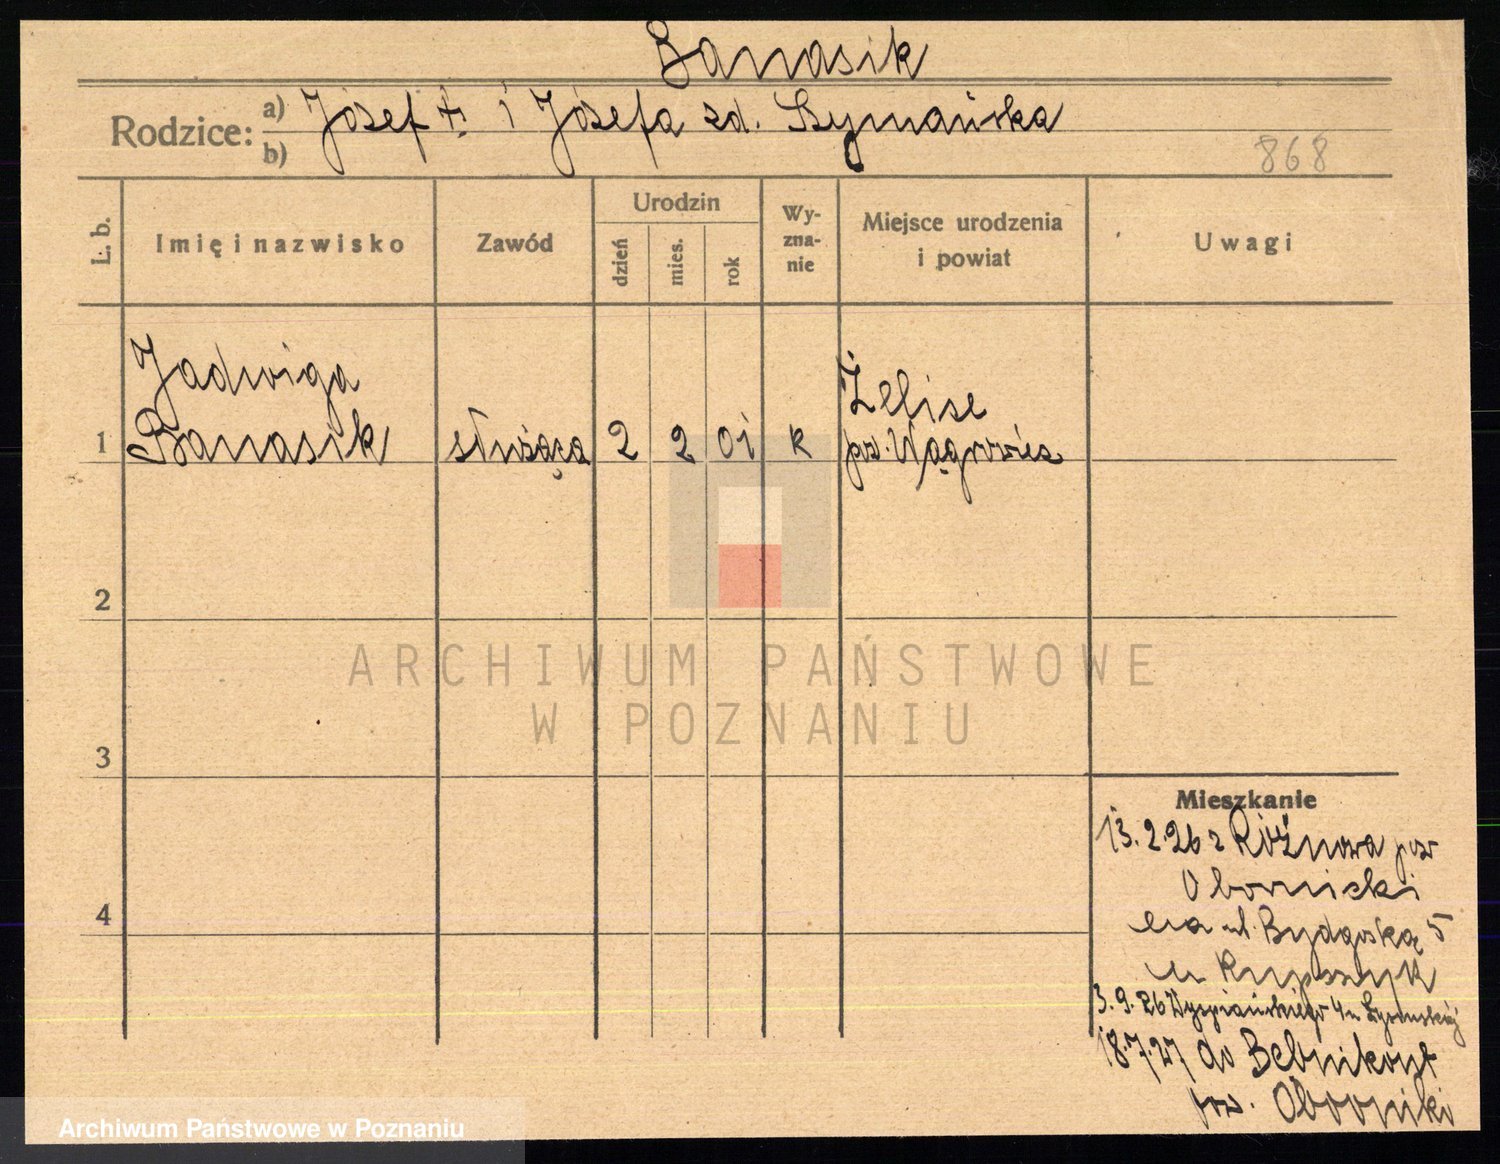 Banasik
Rodzice: a) Józef † i Józefa zd. Szymańska
b)
868
L. b. Imię i nazwisko Zawód Urodzin dzień mies. rok Wy-zna-nie Miejsce urodzenia i powiat Uwagi
Jadwiga Żelice
1 Banasik służąca 2 2 01 k pow. Wągrowiec
2
ARCHIWUM PAŃSTWOWE
W POZNANIU
3
Mieszkanie
13.2.26 z Różnowa pow
Obornicki
4
na ul. Bydgoską 5
u
3.9.26 Wyspiańskiego 4 u
18.7.27 do
pow. Oborniki
Archiwum Państwowe w Poznaniu